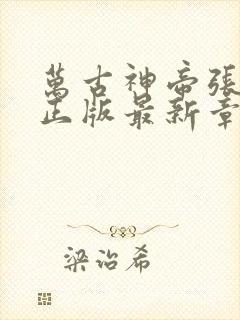 萬古神帝張
正版最新章
梁治希